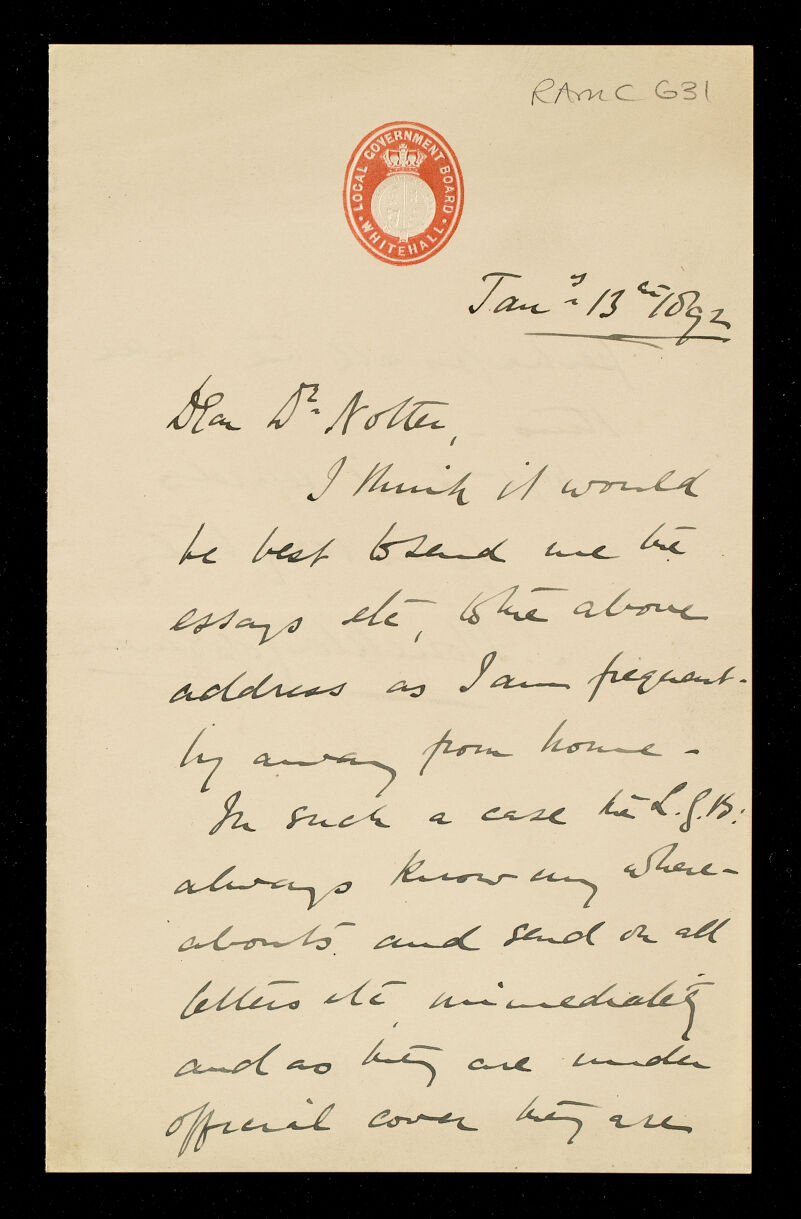 RAMC 631
LOCAL GOVERNMENT BOARD
WHITEHALL
Jany 13th 1892
Dear Dr Notter,
I think it would
be best to send me the
essays etc, to the above
address as I am frequent-
ly away from home -
In such a case the L.G.B.
always know my where-
abouts and send on all
letters etc, immediately
and as they are under
official cover they are